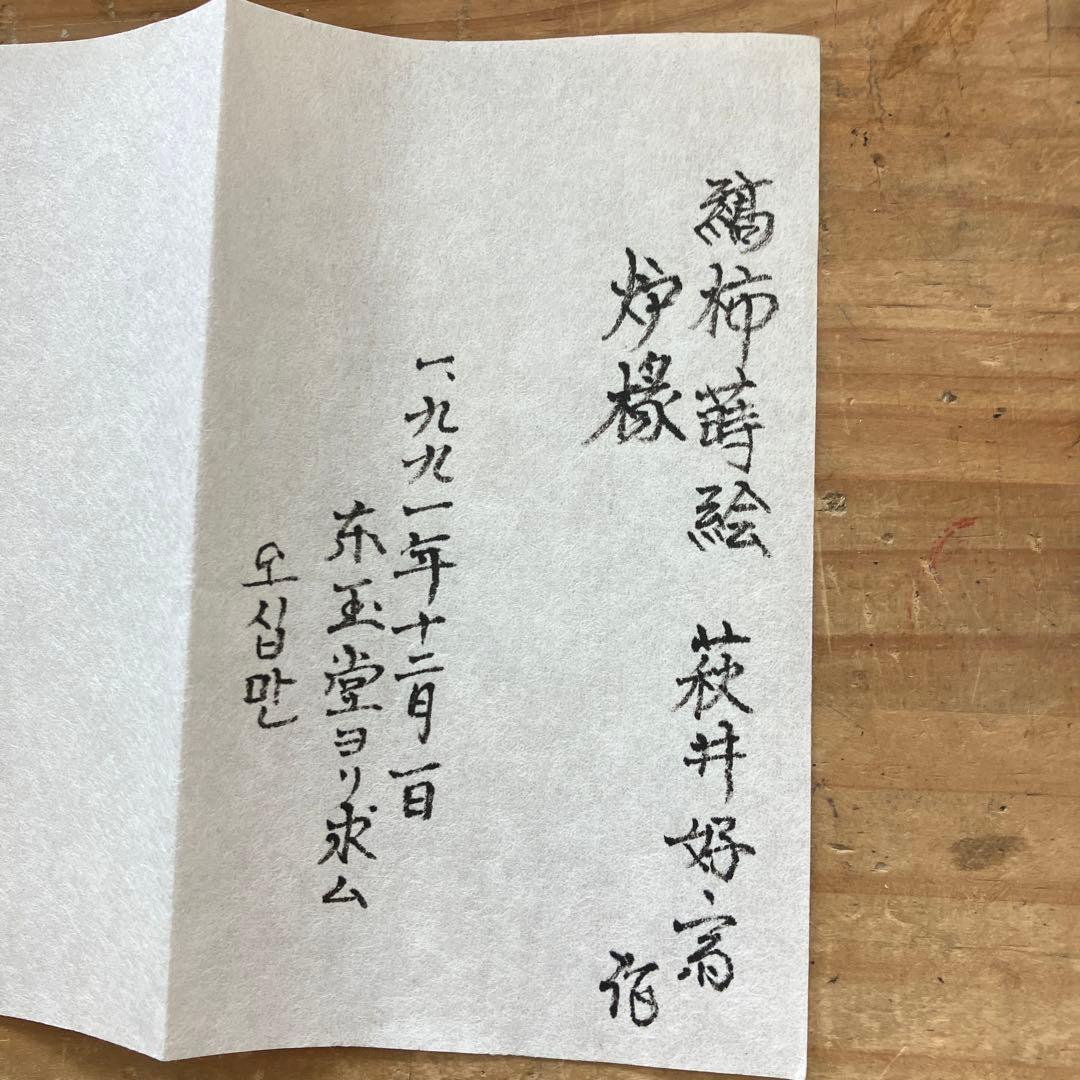 縞柿蒔絵 萩井好斎
炉椽
一九九一年十二月一日
东玉堂ヨリ求ム
오십만